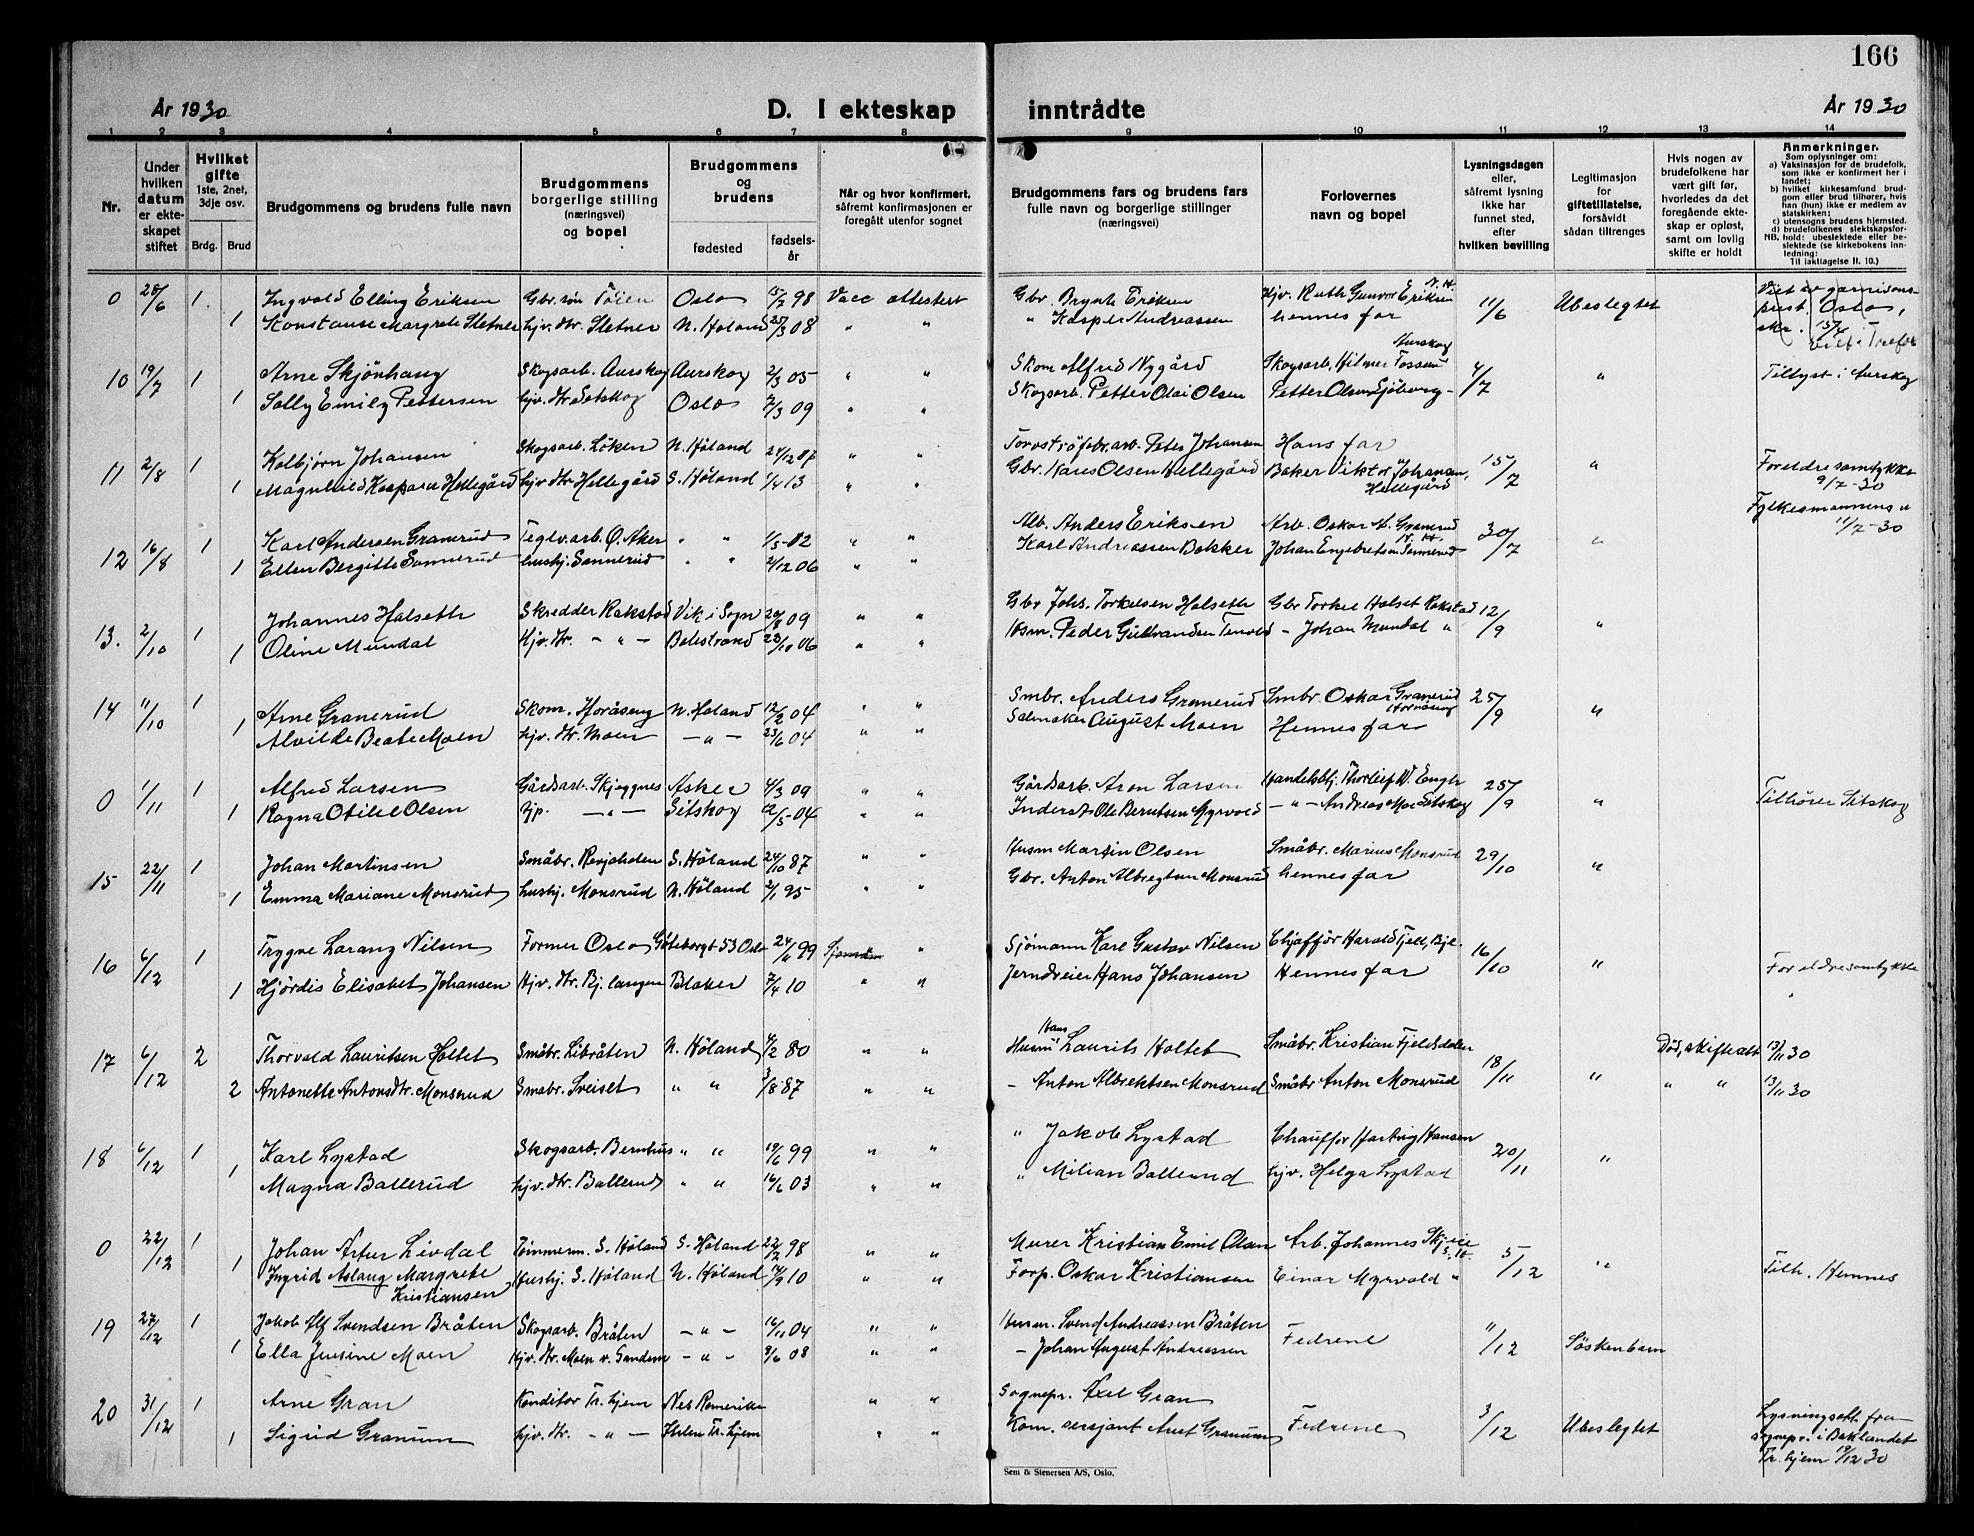 166
År 1930
D. I ekteskap
inntrådte
År 1930
1 2 3 4 5 6 7 8 9 10 11 12 13 14
Nr.
Under hvilken datum er ekteskapet stiftet
Hvilket gifte
1ste, 2net, 3dje osv.
Brdg. Brud
Brudgommens og brudens fulle navn
Brudgommens borgerlige stilling (næringsvei) og bopel
Brudgommens og brudens
fødested
fødselsår
Når og hvor konfirmert, såfremt konfirmasjonen er foregått utenfor sognet
Brudgommens fars og brudens fars fulle navn og borgerlige stillinger (næringsvei)
Forlovernes navn og bopel
Lysningsdagen eller, såfremt lysning ikke har funnet sted, efter hvilken bevilling
Legitimasjon for giftetillatelse, forsåvidt sådan tiltrenges
Hvis nogen av brudefolkene har vært gift før, hvorledes da det foregående ekteskap er opløst, samt om lovlig skifte er holdt
Anmerkninger.
Som oplysninger om:
a) Vaksinasjon for de brudefolk, som ikke er konfirmert her i landet;
b) hvilket kirkesamfund brudgom eller brud tilhører, hvis han (hun) ikke er medlem av statskirken;
c) utensogns brudens hjemsted.
d) brudefolkenes slektskapsforhold: ubeslektede eller beslektede (se kirkebokens innledning:
NB. Til iakttagelse II. 10.)
0 28/6 1 Ingvald Elling Eriksen Gbr. søn Töien Oslo 15/2 98 Vacc attestert Gbr. Brynh Eriksen Hjv. Ruth Gunvor Eriksen N. H. 11/6 Ubeslegtet Viet av garnisons-
1 Konstanse Margrete Sletner hjv. dtr. Sletner N. Höland 25/3 08 " " " Kasper Andreassen hennes far prest. Oslo,
10 19/7 1 Arne Skjönhaug Skogsarb. Aurskog Aurskog 2/3 05 " " Skom. Alfred Nygård Skogsarb. Hilmer Fossum Aurskog 4/7 " Tillyst i Aurskog
1 Solly Emily Pettersen hjv. dtr Setskog Oslo 7/3 09 " " Skogsarb. Petter Olai Olsen Petter Olsen Sjöberg -
11 2/8 1 Kolbjørn Johansen Skogsarb. Löken N. Höland 24/12 07 " " Torvströfabr. arb. Peter Johansen Hans far 15/7 " Foreldresamtykke 9/7-30
1 Magnhild Kaspara Hellegård hjv dtr Hellegård S. Höland 1/4 13 " " Gbr. Kares Olsen Hellegård Baker Viktor Johansen, Hellegård Fylkesmannens " 11/7-30
12 16/8 1 Karl Andersen Granerud Teglv. arb. Ö. Aker " " 1/5-02 " " Alb. Anders Eriksen Arb. Oskar A. Granerud N. H. 30/7 "
1 Ellen Bergitte Sannerud hushj. Sannerud " " 2/12 06 " " Karl Andreassen Bakker Johan Engebretsen Sannerud
13. 2/10 1 Johannes Halseth Skredder Rakstad Vik i Sogn 20/8 09 " " Gbr Johs. Torkelsen Halseth Gbr Torkel Halset Rakstad 12/9 "
1 Oline Mundal Hjv. dtr. - " - Balestrand 23/10 06 " " Husm. Peder Gullvandsen Tenold - Johan Mundal "
14 11/10 1 Arne Granerud Skom. Horåseng N. Höland 12/2 04 " " Smbr. Anders Granerud Smbr. Oskar Granerud 25/9 "
1 Alvilde Beate Moen hjv. dtr. Moen - " - 23/6 04 " " Salmaker August Moen Hennes far
0 1/11 1 Alfred Larsen Gårdsarb. Skjeggnes Asker 4/3 09 " " Gårdsarb. Aron Larsen Handelsbtj. Thorleif W. Engh 25/9 " Tilhörer Setskog
1 Ragna Otilie Olsen hjp. - " - Setskog 12/5-04 " " Inderst Ole Berntsen Myrvold - " - Andreas Moe Setskog
15 22/11 1 Johan Martinsen Småbr. Revjaholen S. Höland 24/10 87 " " Husm Martin Olsen Småbr. Marius Monsrud 29/10 "
1 Emma Mariane Monsrud hushj. Monsrud N. Höland 2/1 95 " " Gbr. Anton Albregtsen Monsrud hennes far
16 6/12 1 Trygve Larang Nilsen Former Oslo Göteborgt 53 Oslo 24/11 99 " Sjömann Karl Gustav Nilsen Chjafför Harald Fjell, Bjl. 16/10 " Foreldresamtykke
1 Hjördis Elisabet Johansen Hjv. dtr. Bj. langen Blaker 7/4 10 " " Jerndreier Hans Johansen Hennes far "
17 6/12 2 Thorvald Lauritsen Holtet Småbr. Libråten N. Höland 4/2 80 " " Husm Hans Laurits Holtet Småbr. Kristian Fjeldsdalen 18/11 " Död, skifteatt 13/11 30
2 Antonette Antonsdtr. Monsrud Småbr. Sveiset " " 3/8 87 " " - Anton Albrektsen Monsrud Småbr Anton Monsrud " " 13/11 30
18 6/12 1 Karl Lystad Skogsarb. Bernhus " " 19/6 99 " " " Jakob Lystad Chauffør Hartvig Hansen 20/11 "
1 Magna Ballerud hjv. dtr. Ballerud " " 16/6 03 " " " Milian Ballerud hjv. Helga Lystad
0 22/12 1 Johan Artur Livdal Tömmerm. S. Höland S. Höland 22/2 98 " " Murer Kristian Emil Olsen Arb. Johannes Skjeie S. H. 5/12 " Tilh. Hemnes
1 Ingrid Aslaug Margrete Kristiansen Hushj. S. Höland N. Höland 14/9 10 " " Forp. Oskar Kristiansen Einar Myrvold "
19 27/12 1 Jakob Alf Svendsen Bråten Skogsarb. Bråten - " - 16/11 04 " " Husm. Svend Andreassen Bråten Fedrene 11/12 Söskenbarn
1 Ella Jusine Moen Hjv. dtr. Moen v. Sandem - " - 9/6 08 " " - Johan August Andreassen
20 31/12 1 Arne Gran Konditor Tr. hjem Nes Romerike " " Sognepr. Axel Gran Fedrene 3/12 Ubeslegtet Lysningsatt. fra
1 Sigrid Granum hjv. dtr. - " - Tr. hjem " " Kom. sersjant Granum sognepr. i Baklandet
Tr. hjem 19/12 30
Sem & Stenersen A/S, Oslo.